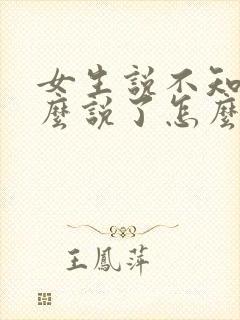 女生說不知
麼說了怎麼
王鳳萍